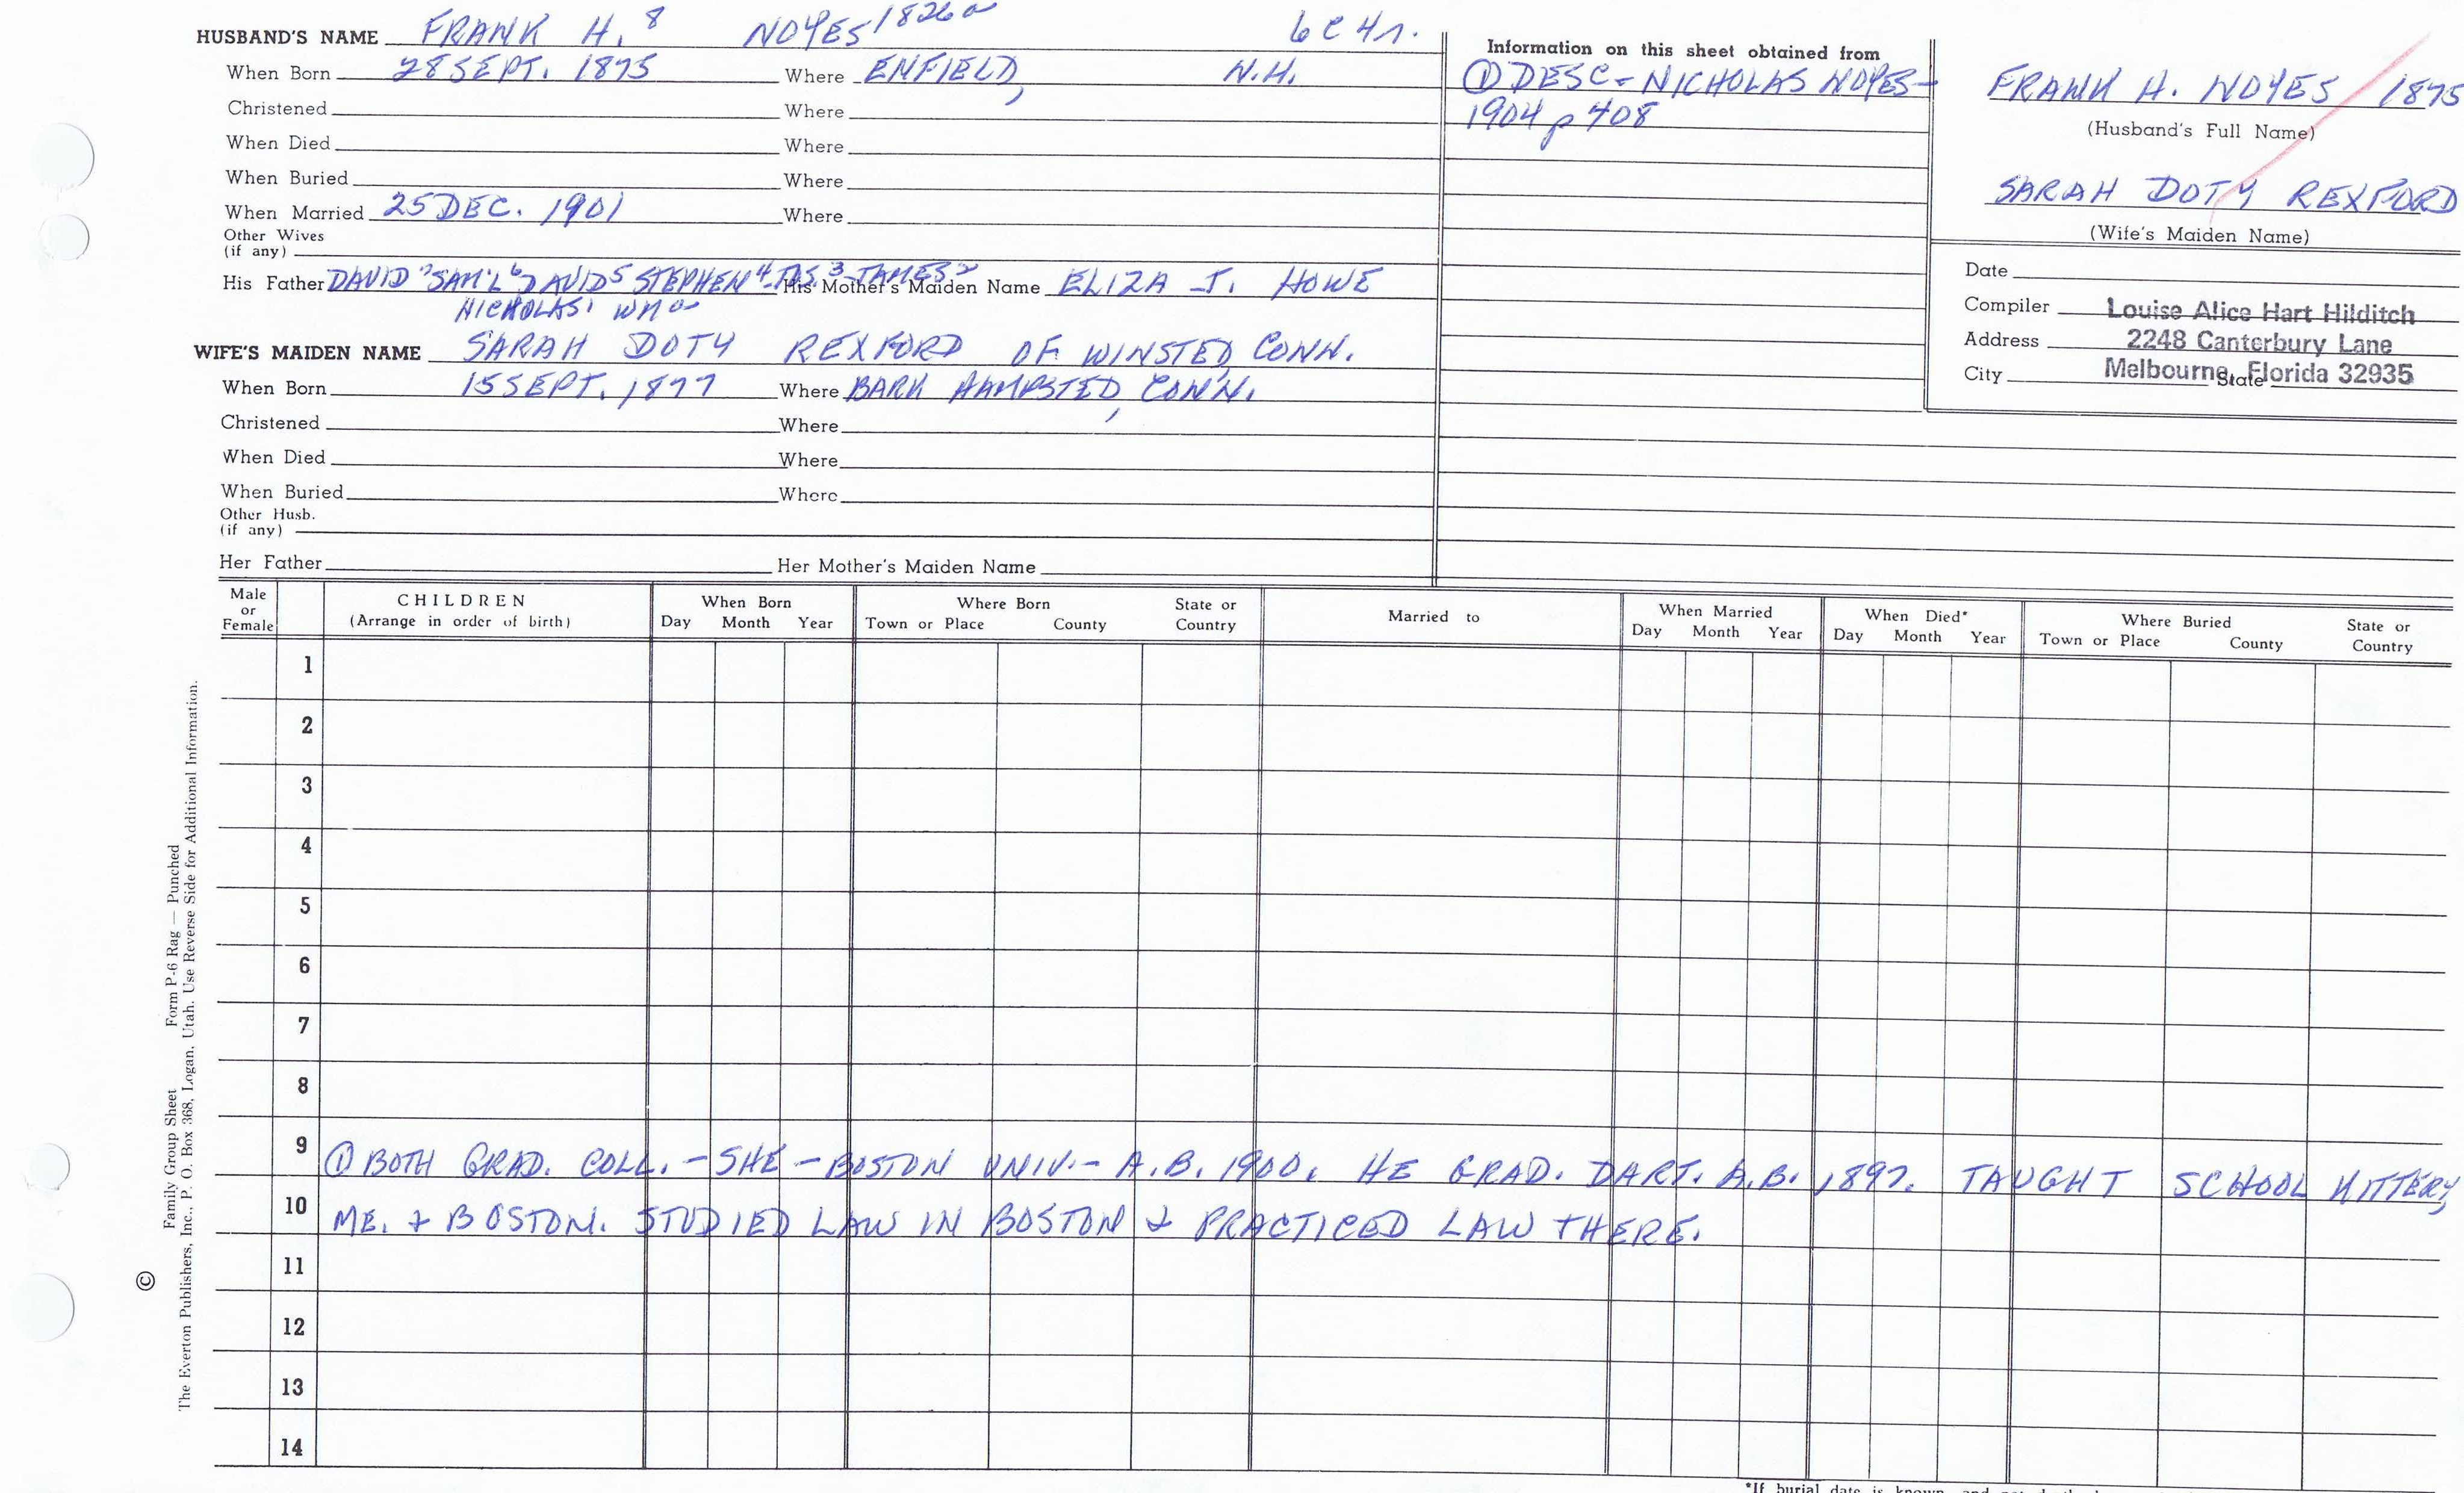 HUSBAND'S NAME FRANK H. 8 NOYES 1826a 6C4r.
When Born 28 SEPT. 1875 Where ENFIELD, N.H.
Christened Where
When Died Where
When Buried Where
When Married 25 DEC. 1901 Where
Other Wives
(if any)
His Father DAVID 7 SAM'L 6 DAVID 5 STEPHEN 4 JAS. 3 JAMES 2 His Mother's Maiden Name ELIZA J. HOWE
NICHOLAS 1 WM 0
WIFE'S MAIDEN NAME SARAH DOTY REXFORD OF WINSTED, CONN.
When Born 15 SEPT. 1877 Where BARK HAMPSTED, CONN.
Christened Where
When Died Where
When Buried Where
Other Husb.
(if any)
Her Father Her Mother's Maiden Name
Information on this sheet obtained from
① DESC - NICHOLAS NOYES -
1904 p 408
FRANK H. NOYES 1875
(Husband's Full Name)
SARAH DOTY REXFORD
(Wife's Maiden Name)
Date
Compiler Louise Alice Hart Hilditch
Address 2248 Canterbury Lane
City Melbourne, Florida 32935 State
Male or Female CHILDREN When Born Where Born State or Country Married to When Married When Died* Where Buried State or Country
(Arrange in order of birth) Day Month Year Town or Place County Day Month Year Day Month Year Town or Place County
1
2
3
4
5
6
7
8
9 ① BOTH GRAD. COLL. - SHE - BOSTON UNIV. - A.B. 1900. HE GRAD. DART. A.B. 1897. TAUGHT SCHOOL KITTERY,
10 ME. & BOSTON. STUDIED LAW IN BOSTON & PRACTICED LAW THERE.
11
12
13
14
© Family Group Sheet Form P-6 Rag — Punched
The Everton Publishers, Inc., P. O. Box 368, Logan, Utah. Use Reverse Side for Additional Information.
*If burial date is known, and